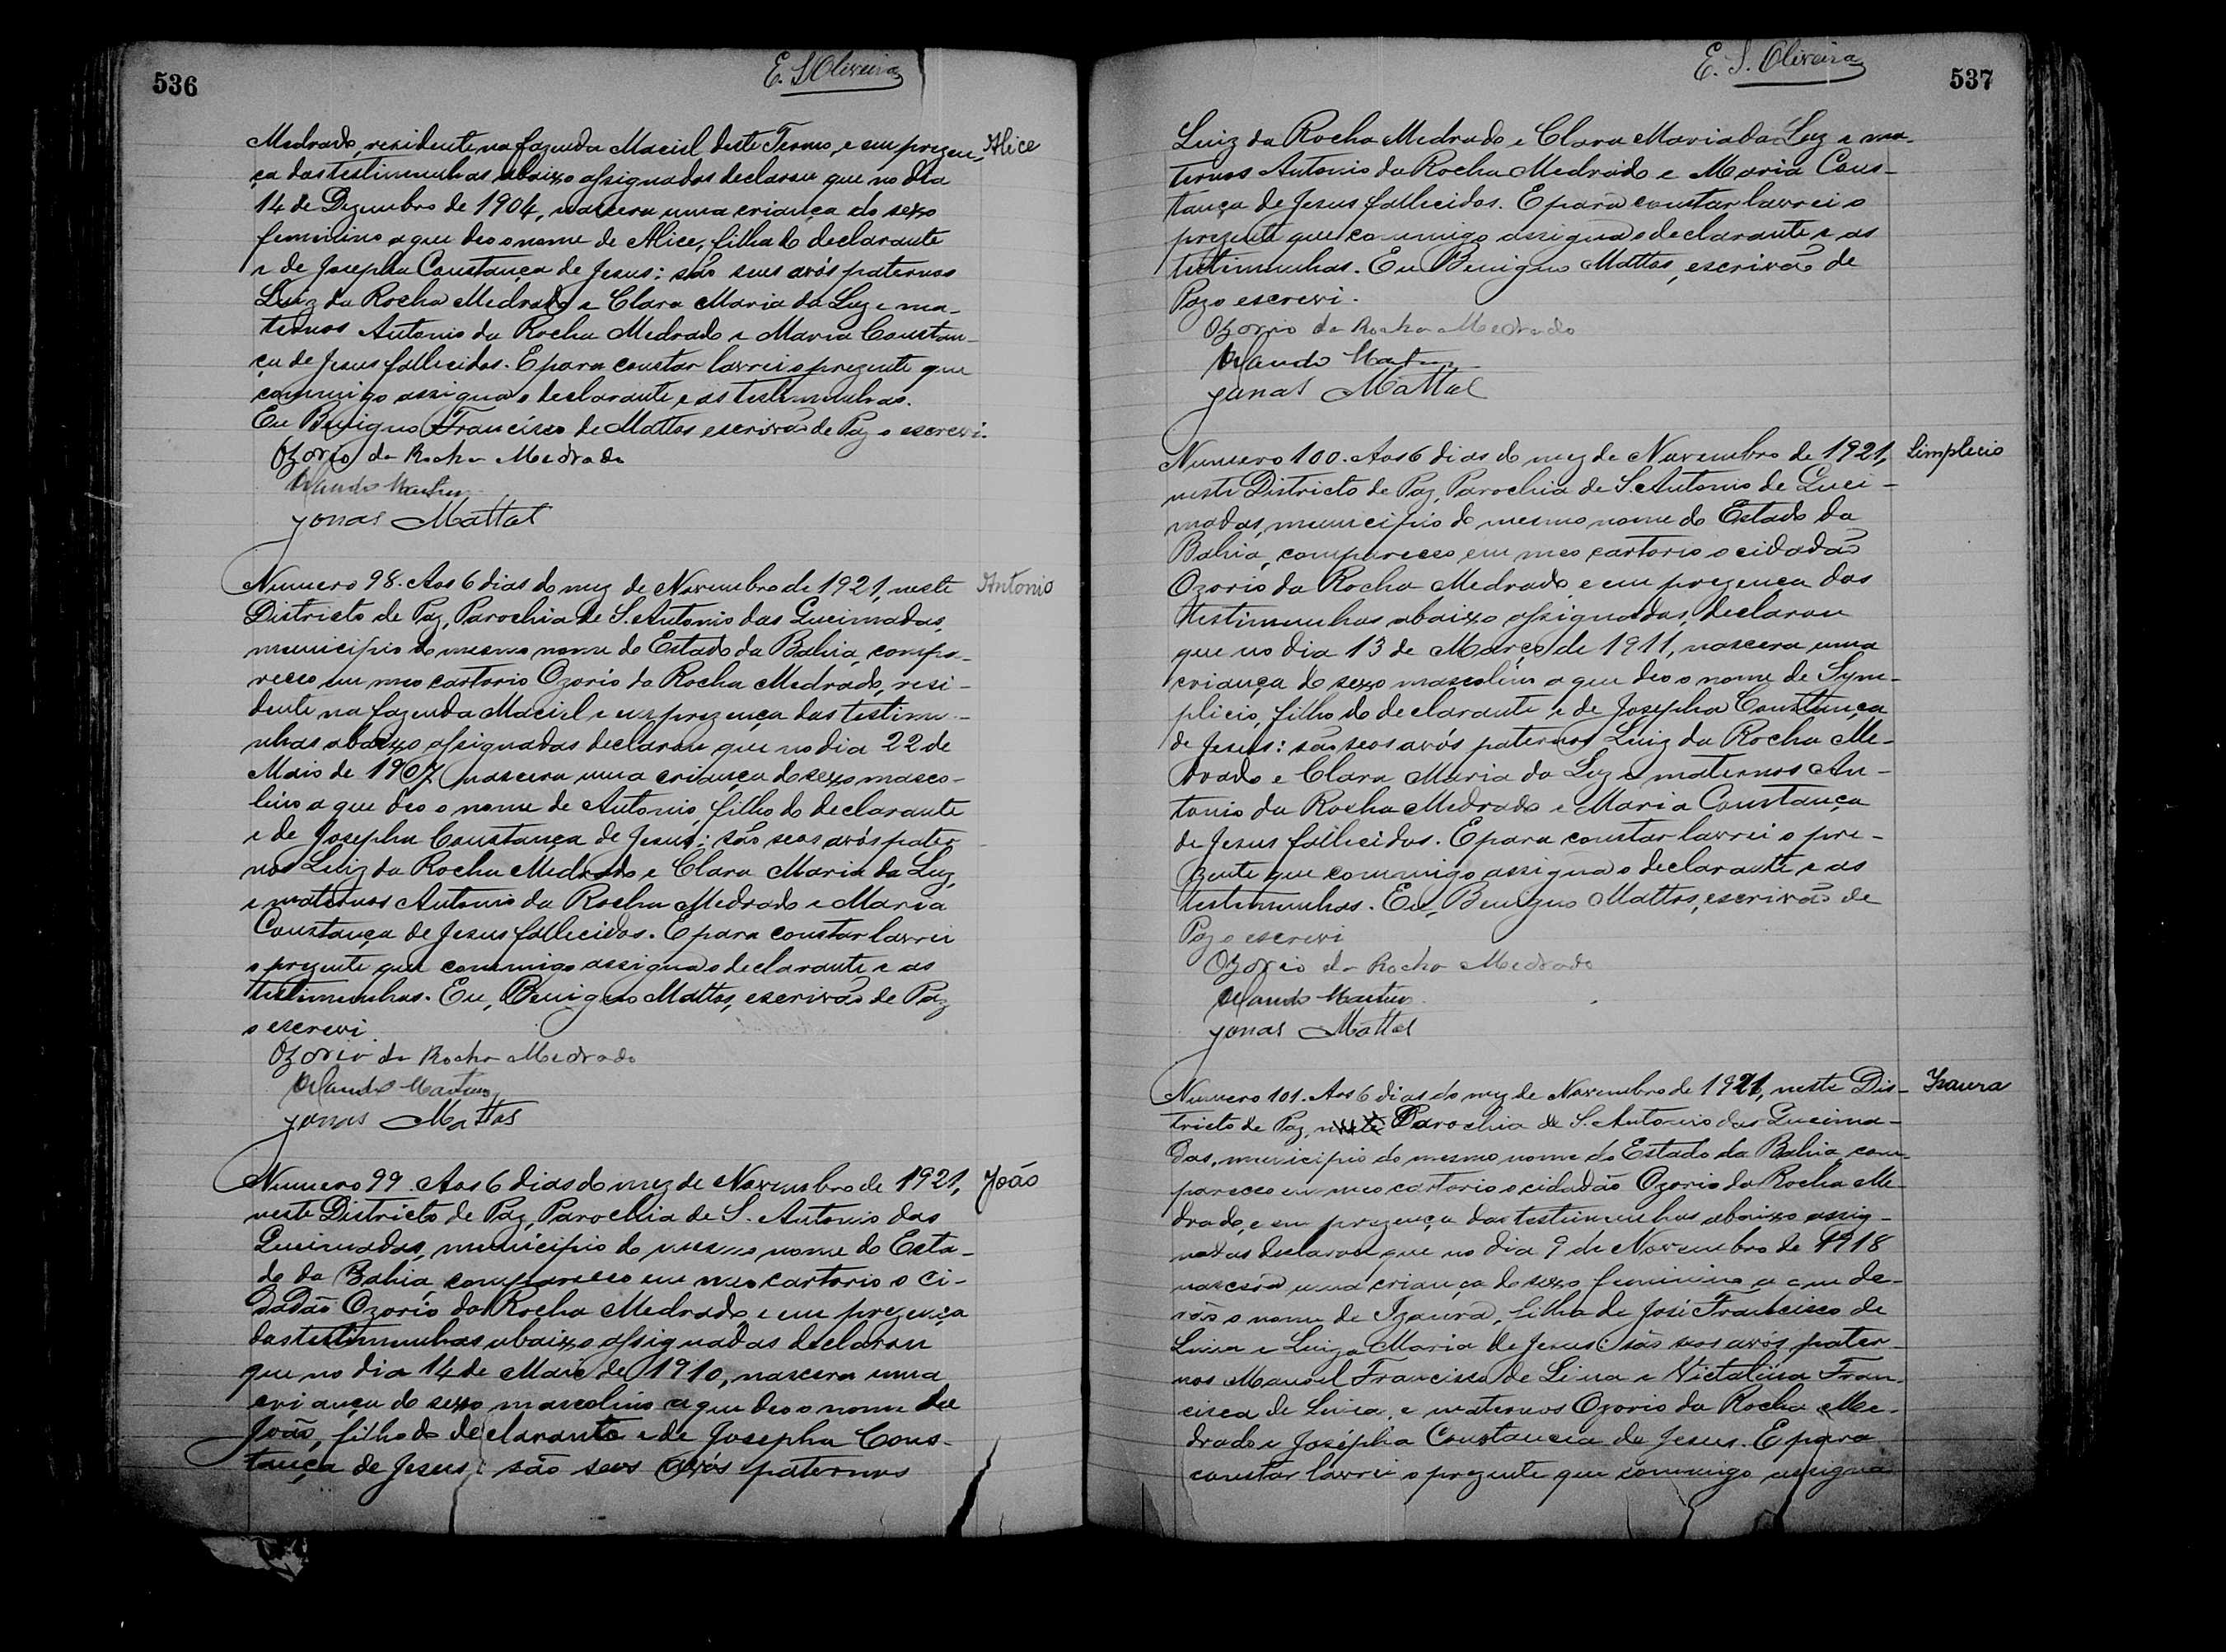 536
E. S. Oliveira
Medrado, residente na fazenda Maciel deste Termo, e em prezen-
Alice
ça das testimunhas abaixo assignadas declarou que no dia
14 de Dezembro de 1904, nascera uma criança do sexo
feminino a que deo o nome de Alice, filha do declarante
e de Josepha Constança de Jesus: são seus avós paternos
Luiz da Rocha Medrado e Clara Maria da Luz e ma-
ternos Antonio da Rocha Medrado e Maria Constan-
ça de Jesus fallecidos. E para constar lavrei o prezente que
commigo assigna o declarante e as testimunhas.
Eu Benigno Francisco de Mattos escrivão de Paz o escrevi.
Ozorio da Rocha Medrado
Orlando Martins
Jonas Mattos
Numero 98. Aos 6 dias do mez de Novembro de 1921, neste
Antonio
Districto de Paz, Parochia de S. Antonio das Queimadas,
municipio do mesmo nome do Estado da Bahia, compa-
receo em meo cartorio Ozorio da Rocha Medrado, resi-
dente na fazenda Maciel e em prezença das testimu-
nhas abaixo assignadas declarou que no dia 22 de
Maio de 1907 nascera uma criança do sexo masco-
lino a que deo o nome de Antonio, filho do declarante
e de Josepha Constança de Jesus: são seos avós pater-
nos Luiz da Rocha Medrado e Clara Maria da Luz,
e maternos Antonio da Rocha Medrado e Maria
Constança de Jesus fallecidos. E para constar lavrei
o prezente que commigo assigna o declarante e as
testimunhas. Eu, Benigno Mattos, escrivão de Paz
o escrevi.
Ozorio da Rocha Medrado
Orlando Martins
Jonas Mattos
Numero 99. Aos 6 dias do mez de Novembro de 1921,
João
neste Districto de Paz, Parochia de S. Antonio das
Queimadas, municipio do mesmo nome do Esta-
do da Bahia, compareceo em meo cartorio o ci-
dadão Ozorio da Rocha Medrado e em prezença
das testimunhas abaixo assignadas declarou
que no dia 14 de Maio de 1910, nascera uma
criança do sexo mascolino a que deo o nome de
João, filho do declarante e de Josepha Cons-
tança de Jesus: são seos avós paternos
537
E. S. Oliveira
Luiz da Rocha Medrado e Clara Maria da Luz e ma-
ternos Antonio da Rocha Medrado e Maria Cons-
tança de Jesus fallecidos. E para constar lavrei o
prezente que commigo assigna o declarante e as
testimunhas. Eu Benigno Mattos, escrivão de
Paz o escrevi.
Ozorio da Rocha Medrado
Orlando Martins
Jonas Mattos
Numero 100. Aos 6 dias do mez de Novembro de 1921,
Simplicio
neste Districto de Paz, Parochia de S. Antonio de Quei-
madas, municipio do mesmo nome do Estado da
Bahia, compareceo em meo cartorio o cidadão
Ozorio da Rocha Medrado, e em prezença das
testimunhas abaixo assignadas, declarou
que no dia 13 de Março de 1911, nascera uma
criança do sexo mascolino a que deo o nome de Sym-
plicio, filho do declarante e de Josepha Constança
de Jesus: são seos avós paternos Luiz da Rocha Me-
drado e Clara Maria da Luz e maternos An-
tonio da Rocha Medrado e Maria Constança
de Jesus fallecidos. E para constar lavrei o pre-
zente que commigo assigna o declarante e as
testimunhas. Eu, Benigno Mattos, escrivão de
Paz o escrevi
Ozorio da Rocha Medrado
Orlando Martins
Jonas Mattos
Numero 101. Aos 6 dias do mez de Novembro de 1921, neste Dis-
Izaura
tricto de Paz, neste Parochia de S. Antonio das Queima-
das, municipio do mesmo nome do Estado da Bahia, com-
pareceo em meo cartorio o cidadão Ozorio da Rocha Me-
drado, e em prezença das testimunhas abaixo assig-
nadas declarou que no dia 9 de Novembro de 1918
nascera uma criança do sexo feminino a que de-
rão o nome de Izaura, filha de José Francisco de
Lima e Luiza Maria de Jesus: são seos avós pater-
nos Manoel Francisco de Lima e Victalina Fran-
cisca de Lima, e maternos Ozorio da Rocha Me-
drado e Josépha Constancia de Jesus. E para
constar lavrei o prezente que commigo assigna